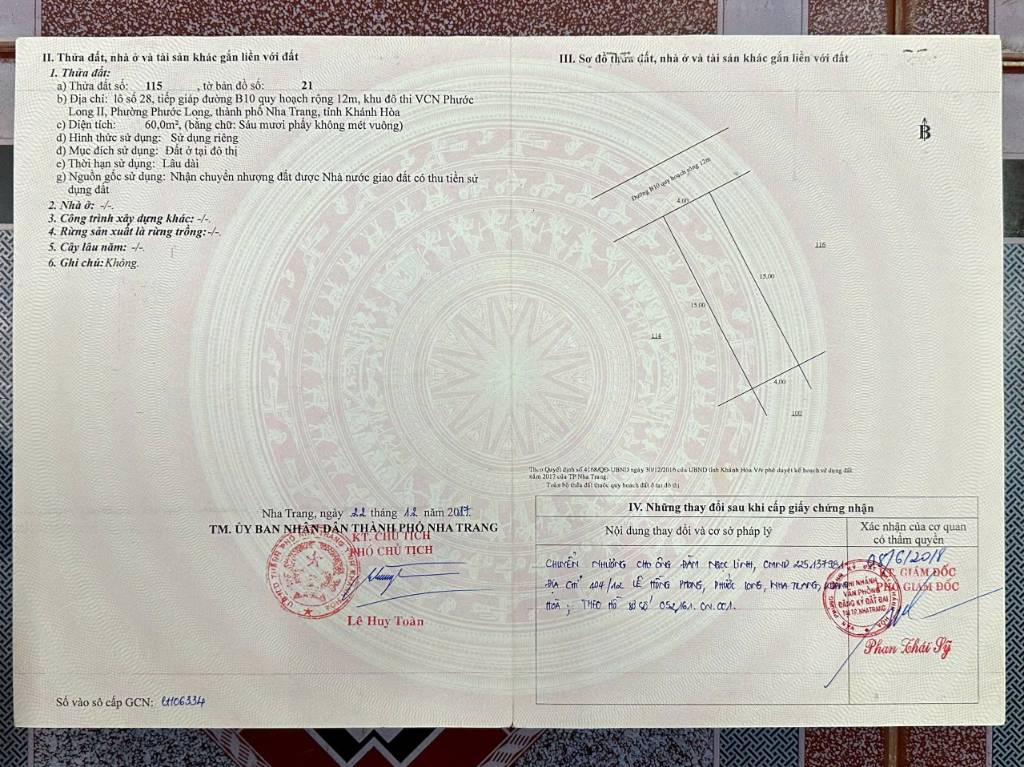 II. Thửa đất, nhà ở và tài sản khác gắn liền với đất
1. Thửa đất:
a) Thửa đất số: 115 , tờ bản đồ số: 21
b) Địa chỉ: lô số 28, tiếp giáp đường B10 quy hoạch rộng 12m, khu đô thi VCN Phước
Long II, Phường Phước Long, thành phố Nha Trang, tỉnh Khánh Hòa
c) Diện tích: 60,0m², (bằng chữ: Sáu mươi phẩy không mét vuông)
d) Hình thức sử dụng: Sử dụng riêng
đ) Mục đích sử dụng: Đất ở tại đô thị
e) Thời hạn sử dụng: Lâu dài
g) Nguồn gốc sử dụng: Nhận chuyển nhượng đất được Nhà nước giao đất có thu tiền sử
dụng đất
2. Nhà ở: -/-.
3. Công trình xây dựng khác: -/-.
4. Rừng sản xuất là rừng trồng:-/-.
5. Cây lâu năm: -/-.
6. Ghi chú: Không.
Nha Trang, ngày 22 tháng 12 năm 2017.
TM. ỦY BAN NHÂN DÂN THÀNH PHỐ NHA TRANG
KT. CHỦ TỊCH
PHÓ CHỦ TỊCH
Lê Huy Toàn
Số vào sổ cấp GCN:
III. Sơ đồ thửa đất, nhà ở và tài sản khác gắn liền với đất
B
Đường B10 quy hoạch rộng 12m
4,00
116
15,00
15,00
114
4,00
100
Theo Quyết định số 4168/QĐ-UBND ngày 30/12/2016 của UBND tỉnh Khánh Hòa V/v phê duyệt kế hoạch sử dụng đất
năm 2017 của TP Nha Trang:
Toàn bộ thửa đất thuộc quy hoạch đất ở tại đô thị
IV. Những thay đổi sau khi cấp giấy chứng nhận
Nội dung thay đổi và cơ sở pháp lý
Xác nhận của cơ quan
có thẩm quyền
CHUYỂN NHƯỢNG CHO ÔNG ĐÀM NGỌC LINH, CMND
ĐỊA CHỈ LÊ HỒNG PHONG, PHƯỚC LONG, NHA TRANG, KHÁNH
HÒA; THEO HỒ SƠ SỐ
08/6/2018
KT. GIÁM ĐỐC
PHÓ GIÁM ĐỐC
CHI NHÁNH
VĂN PHÒNG
ĐĂNG KÝ ĐẤT ĐAI
TẠI TP.NHA TRANG
Phan Thái Sỹ